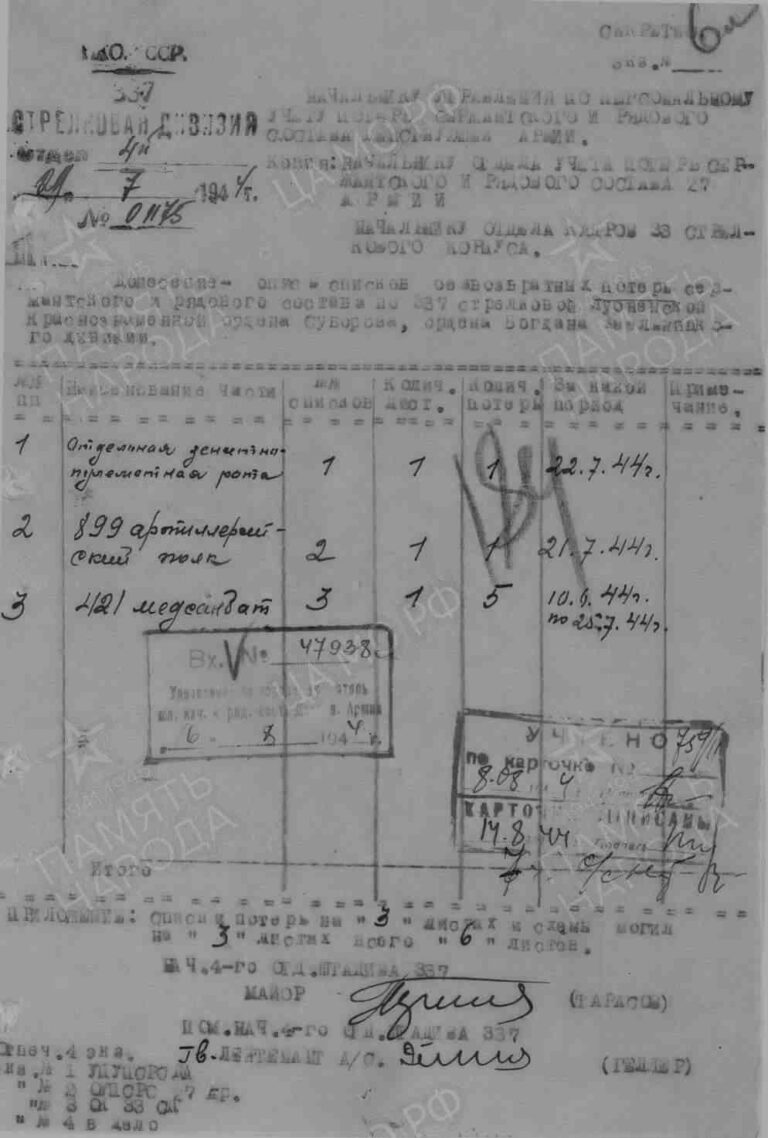 СЕКРЕТНО
6 л
Н.К.О. СССР.
экз.№
337
СТРЕЛКОВАЯ ДИВИЗИЯ
отдел 4й
29. 7 1944г.
№ 01175
НАЧАЛЬНИКУ УПРАВЛЕНИЯ ПО ПЕРСОНАЛЬНОМУ
УЧЕТУ ПОТЕРЬ СЕРЖАНТСКОГО И РЯДОВОГО
СОСТАВА ДЕЙСТВУЮЩЕЙ АРМИИ.
Копия: НАЧАЛЬНИКУ ОТДЕЛА УЧЕТА ПОТЕРЬ СЕР-
ЖАНТСКОГО И РЯДОВОГО СОСТАВА 27
АРМИИ
НАЧАЛЬНИКУ ОТДЕЛА КАДРОВ 33 СТРЕЛ-
КОВОГО КОРПУСА.
Донесение- опись списков безвозвратных потерь сер-
жантского и рядового состава по 337 стрелковой Лубненской
Краснознаменной ордена Суворова, ордена Богдана Хмельницко-
го дивизии.
№№ пп Наименование части №№ списков Колич. лист. Колич. потерь За какой период Приме-чание.
1 Отдельная зенитно-
пулеметная рота 1 1 1 22.7.44г.
184
2 899 артиллерий-
ский полк 2 1 1 21.7.44г.
3 421 медсанбат 3 1 5 10.6.44г.
по 25.7.44г.
Вх. № 47938
6 8 1944 г.
УЧТЕНО
по карточке №
8.08 4
КАРТО
14.8.44
Итого
ПРИЛОЖЕНИЕ: Списки потерь на "3" листах и схемы могил
на "3" листах всего "6" листов.
НАЧ.4-го ОТД.ШТАДИВА 337
МАЙОР (ТАРАСОВ)
ПОМ.НАЧ.4-го ОТД.ШТАДИВА 337
Гв. ЛЕЙТЕНАНТ А/С. (ГЕЛЛЕР)
Отпеч.4 экз.
" № 3 ОК 33 СК
" № 4 в дело
ПАМЯТЬ НАРОДА
ЦАМО РФ